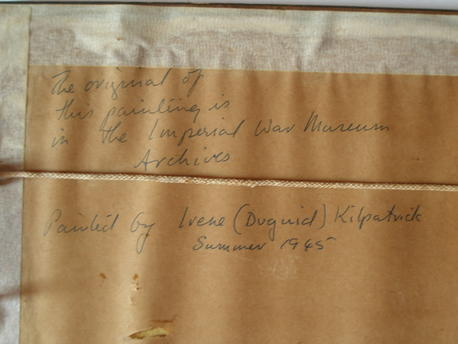 The original of
this painting is
in the Imperial War Museum
Archives
Painted by Irene (Duguid) Kilpatrick
Summer 1945